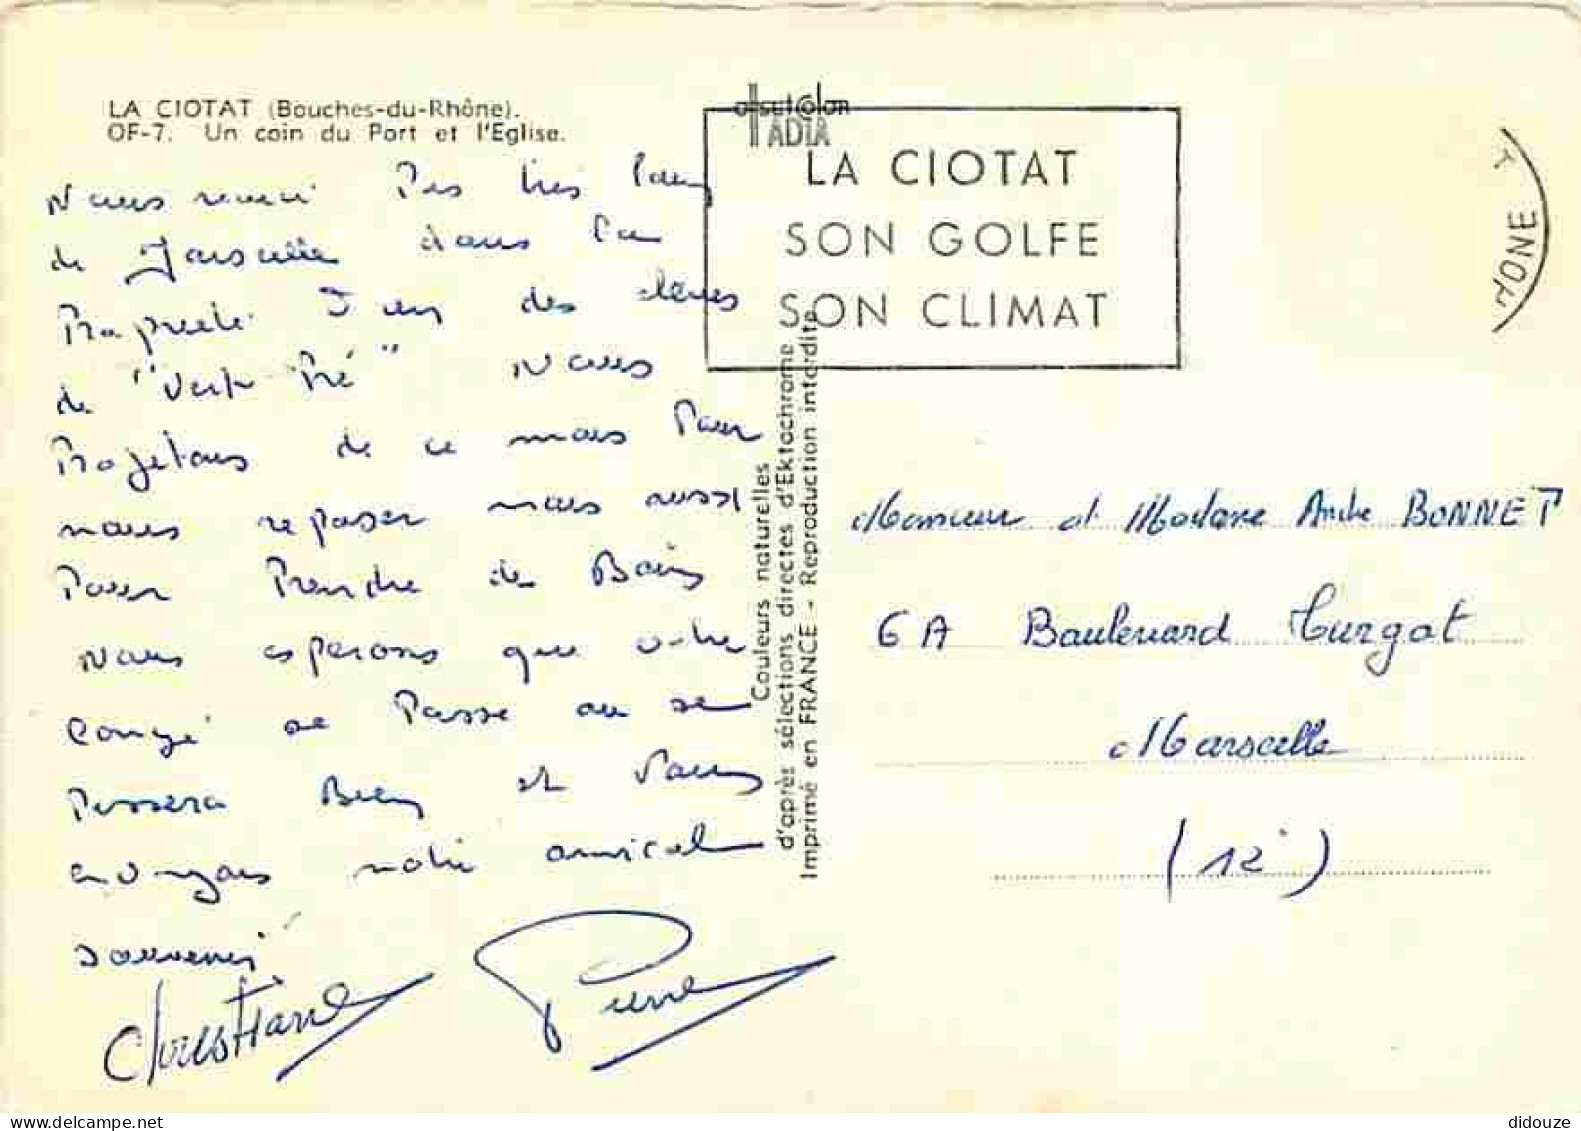 LA CIOTAT (Bouches-du-Rhône).
OF-7. Un coin du Port et l'Eglise.
offset color
IADIA
LA CIOTAT
SON GOLFE
SON CLIMAT
HONE
Nous voici Pas très loin
de Marseille dans la
Propriété d'un des élèves
de "Vert Pré" Nous
Projetons de ce mois Pour
nous reposer mais aussi
Pour Prendre des Bains
Nous esperons que votre
congé se Passe ou se
Passera Bien et Vous
envoyons notre amical
souvenir
Christiane Pierre
Couleurs naturelles
d'après sélections directes d'Ektachrome
Imprimé en FRANCE - Reproduction interdite
Monsieur et Madame Andre BONNET
6A Boulevard Turgot
Marseille
(12e)
didouze